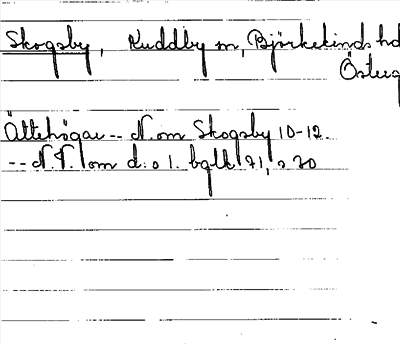 Skogsby, Kuddby sn, Björkekinds hd
Österg
Ättehögar -- N. om Skogsby 10-12.
-- N.V. om d:o 1. bglk 71, s 70